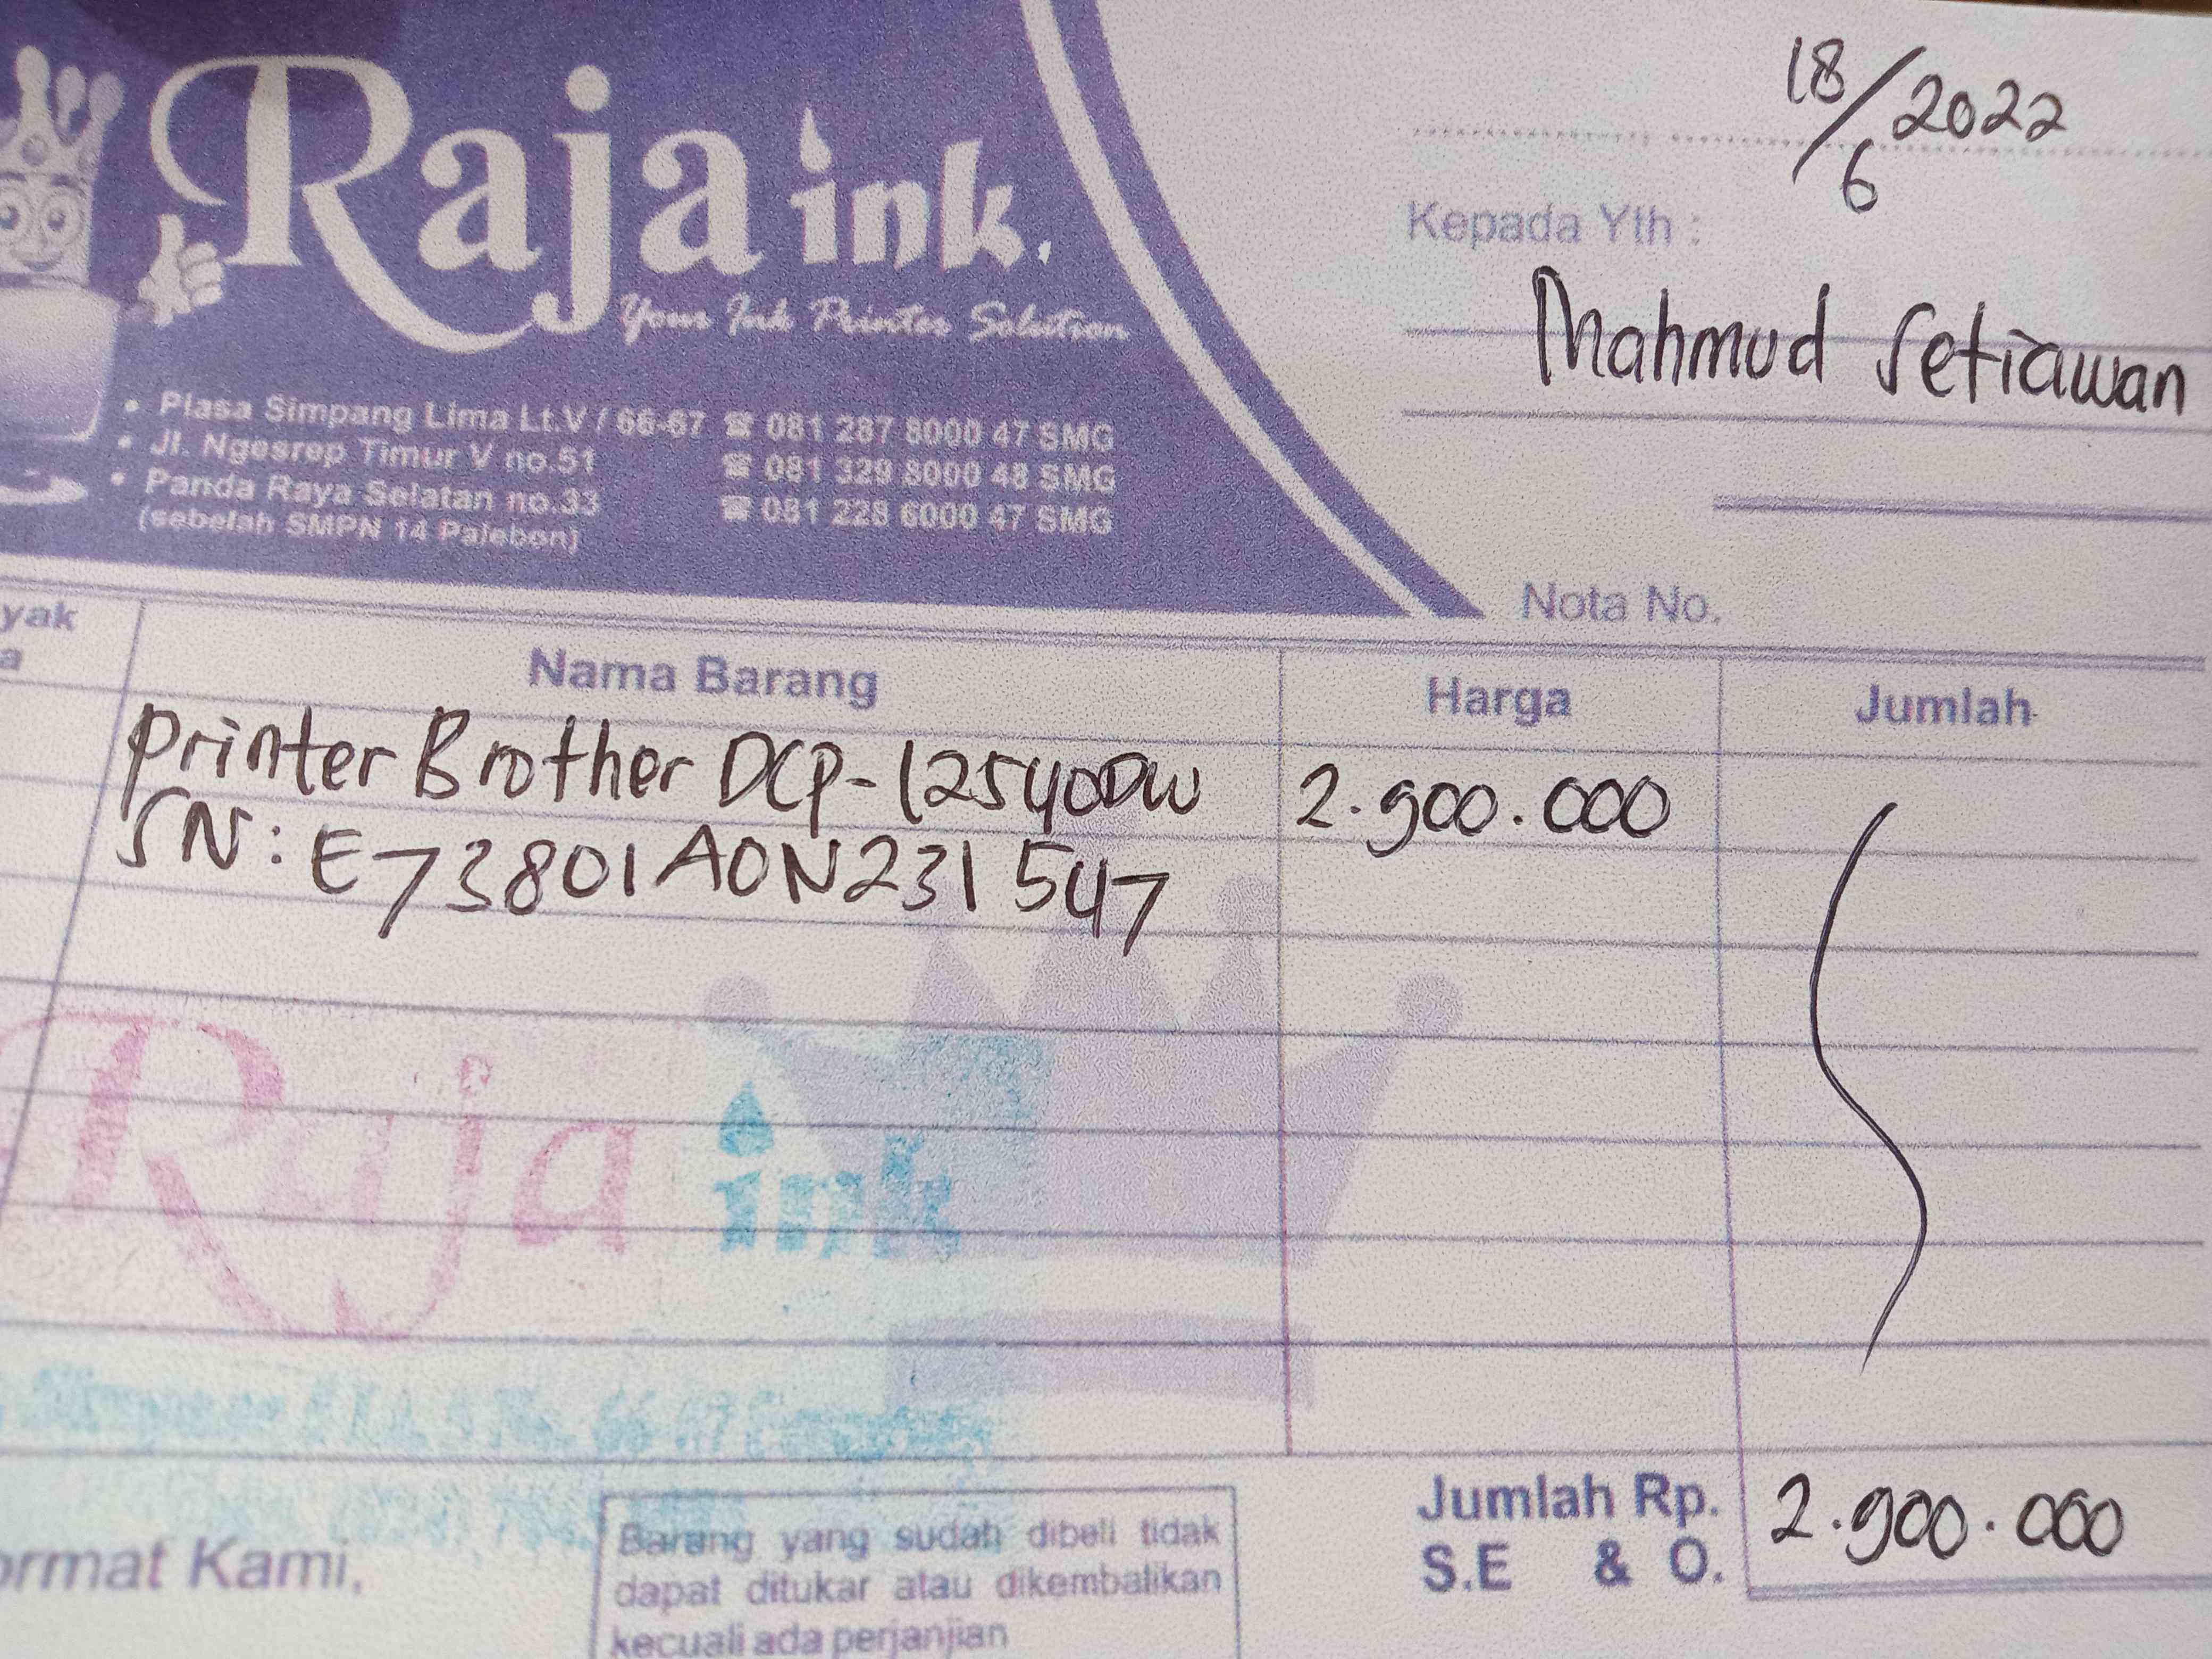 Raja ink.
Your Ink Printer Solution
• Plasa Simpang Lima Lt.V / 66-67 ☎ 081 287 8000 47 SMG
• Jl. Ngesrep Timur V no.51 ☎ 081 329 8000 48 SMG
• Panda Raya Selatan no.33 ☎ 081 228 6000 47 SMG
(sebelah SMPN 14 Palebon)
18/6 2022
Kepada Yth :
Mahmud Setiawan
Nota No.
yak
a
Nama Barang Harga Jumlah
Printer Brother DCP-L2540DW 2.900.000
SN: E73801A0N231547
Raja ink
66-67
ormat Kami,
Barang yang sudah dibeli tidak
dapat ditukar atau dikembalikan
kecuali ada perjanjian
Jumlah Rp. 2.900.000
S.E & O.